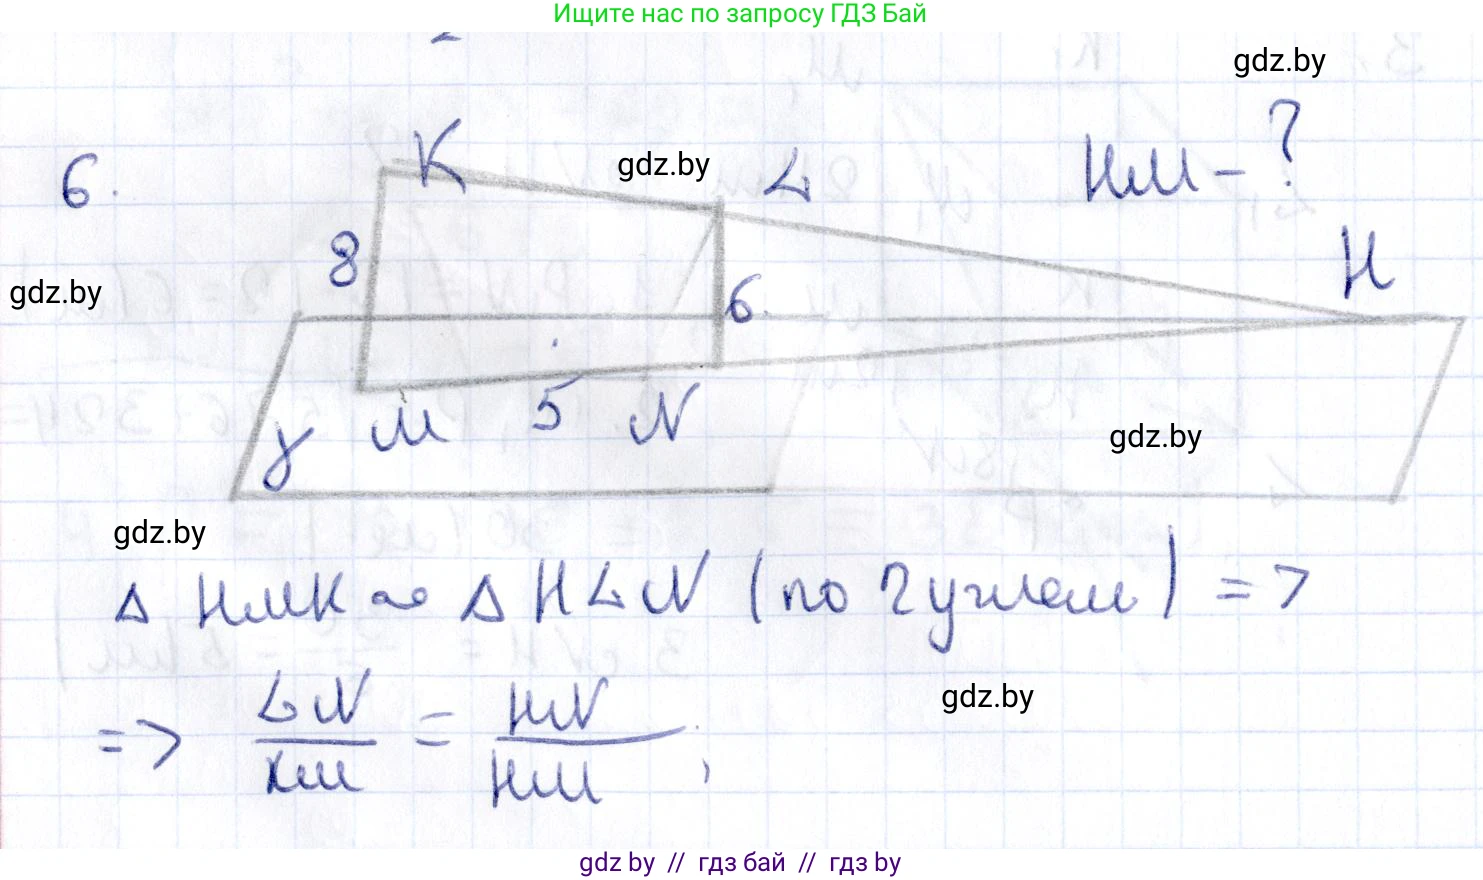 Ищите нас по запросу ГДЗ Бай
gdz.by
6. K gdz.by L HM - ?
8 H
gdz.by 6
M 5 N
γ gdz.by
gdz.by
Δ HMK ~ Δ HLN (по 2 углам) =>
gdz.by
=> LN/KM = HN/HM ;
gdz by // гдз бай // гдз by